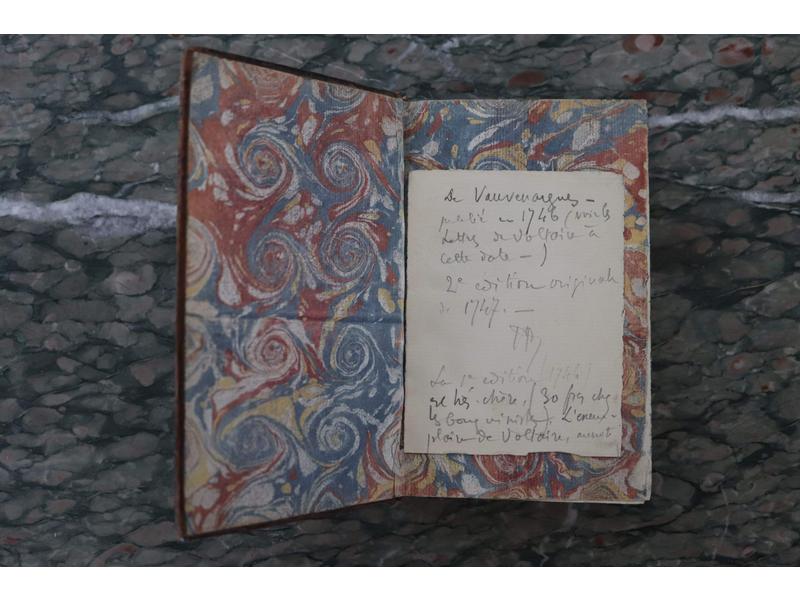 De Vauvenargues –
publié en 1746 (voir les
Lettres de Voltaire à
cette date – )
2e edition originale
de 1747. –
La 1e edition (1746)
est très chère, (30 frs chez
les bouquinistes). L'exem-
plaire de Voltaire, annoté